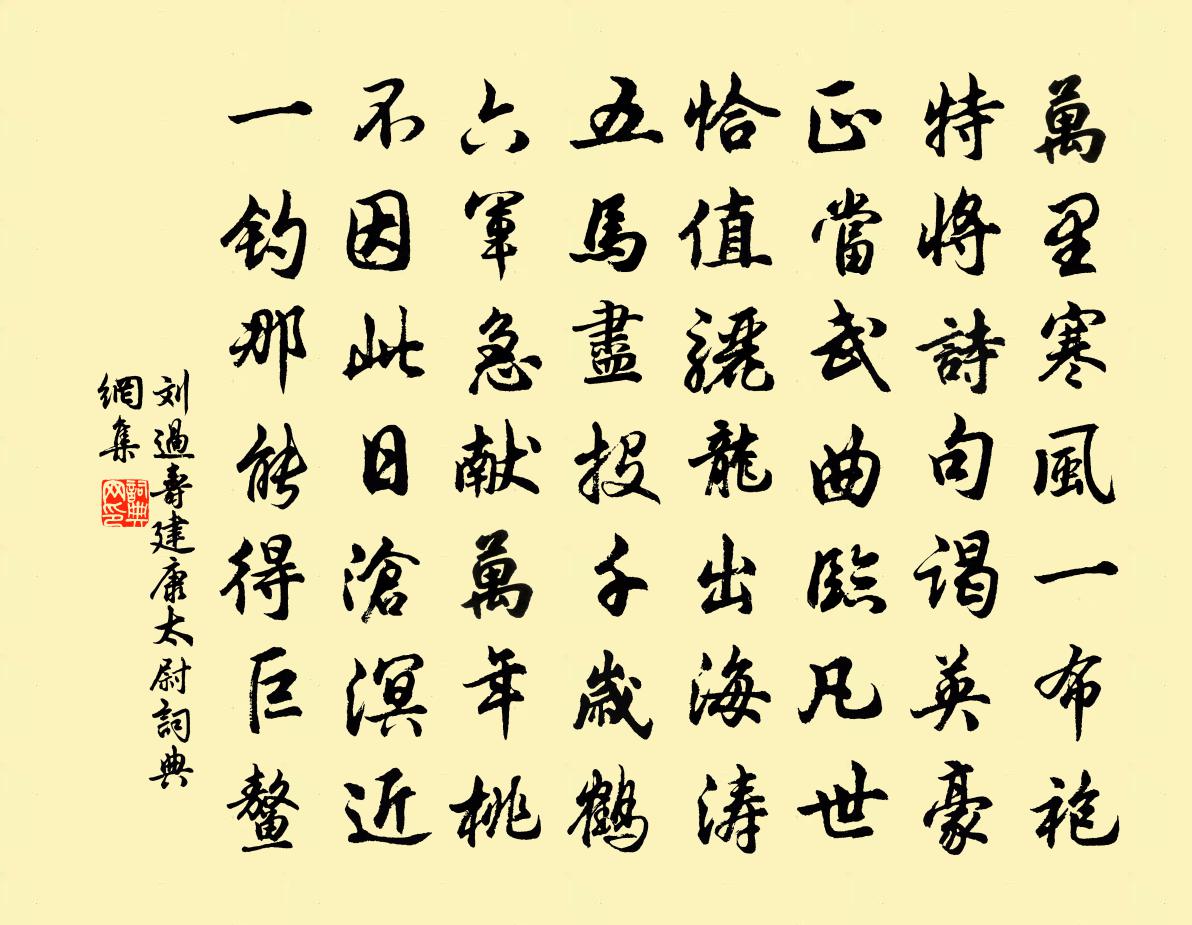 萬里寒風一布袍
特將詩句谒英豪
正當武曲臨凡世
恰值驪龍出海涛
五馬盡投千歲鶴
六軍急献萬年桃
不因此日滄溟近
一钓那能得巨鳌
刘過壽建康太尉詞典
網集
詞典
网印